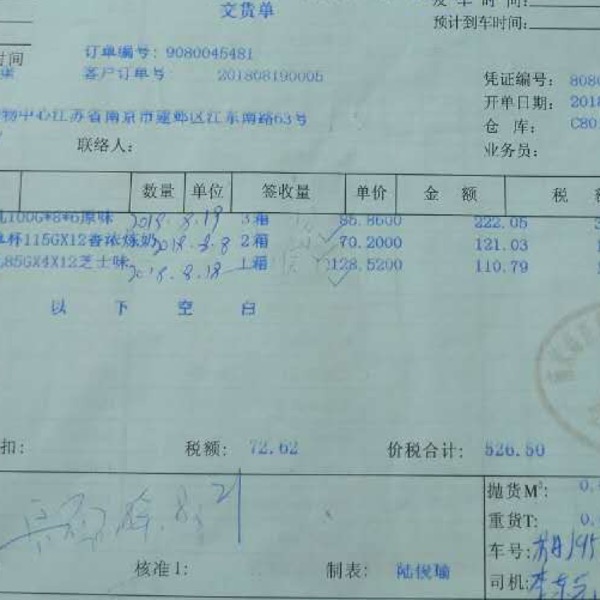 交货单
预计到车时间:
时间 订单编号: 9080045481
客户订单号 201808190005 凭证编号: 808
开单日期: 2018
物中心江苏省南京市建邺区江东南路63号 仓 库: C80
联络人: 业务员:
数量 单位 签收量 单价 金 额 税
100G*8*6原味 2018.8.19 3箱 85.8600 222.05
杯115GX12香浓炼奶 2018.8.8 2箱 70.2000 121.03 1
85GX4X12芝士味 2018.8.18 1箱 128.5200 110.79 1
以 下 空 白
扣: 税额: 72.62 价税合计: 526.50
抛货M³: 0.
重货T: 0.
车号:
核准1: 制表: 陆俊瑜 司机: